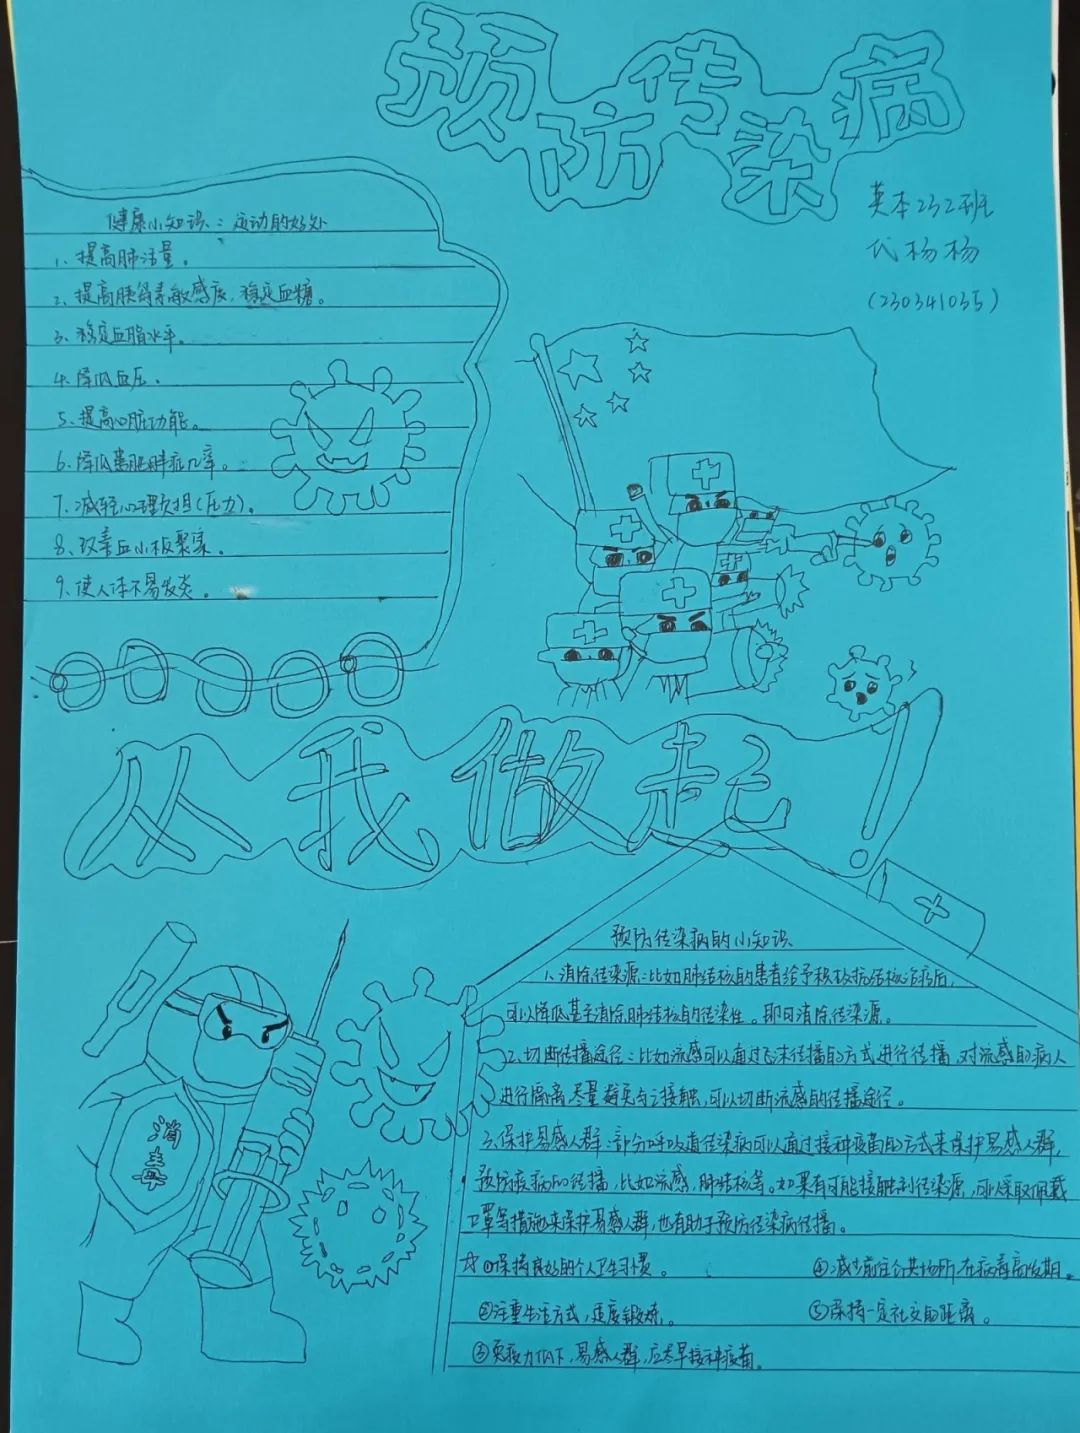 预防传染病
英本232班
代杨杨
(230341035)
健康小知识：运动的好处
1、提高肺活量。
2、提高胰岛素敏感度，稳定血糖。
3、稳定血脂水平。
4、降低血压.
5、提高心脏功能。
6、降低患肥胖症几率。
7、减轻心理负担(压力)。
8、改善血小板聚集。
9、使人体不易发炎。
从我做起！
消毒
预防传染病的小知识
1、消除传染源:比如肺结核的患者给予积极抗结核治疗后,
可以降低甚至消除肺结核的传染性。即可消除传染源。
2、切断传播途径:比如流感可以通过飞沫传播的方式进行传播,对流感的病人
进行隔离,尽量避免与之接触,可以切断流感的传播途径。
3、保护易感人群:部分呼吸道传染病可以通过接种疫苗的方式来保护易感人群,
预防疾病的传播，比如流感，肺结核等。如果有可能接触到传染源，可以采取佩戴
口罩等措施来保护易感人群,也有助于预防传染病传播。
☆①保持良好的个人卫生习惯。
④减少前往公共场所,在病毒高发期。
②注重生活方式,适度锻炼。
⑤保持一定社交的距离。
③免疫力低下,易感人群,应尽早接种疫苗。